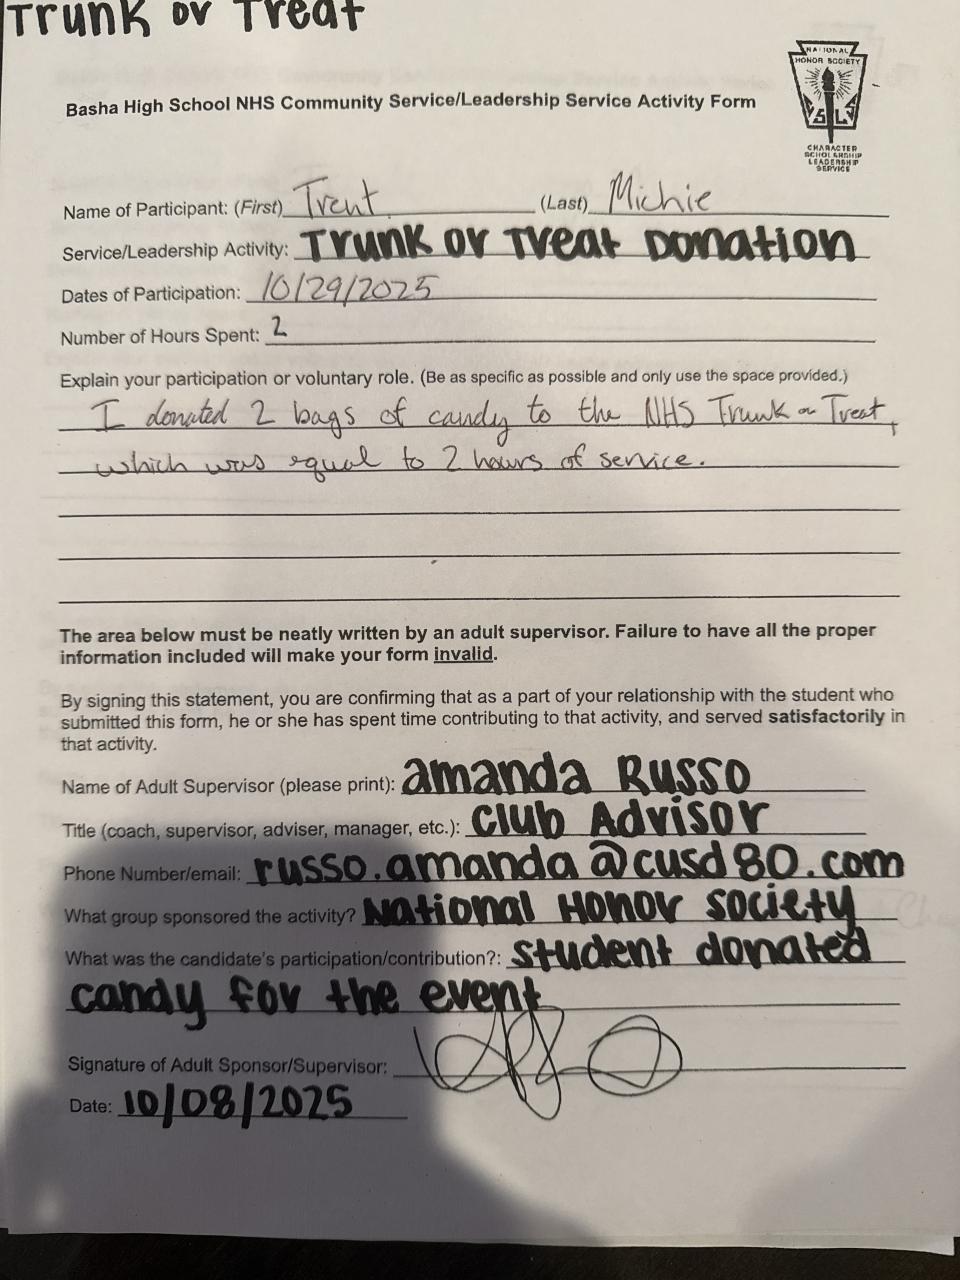 Trunk or Treat
NATIONAL
HONOR SOCIETY
S L S
CHARACTER
SCHOLARSHIP
LEADERSHIP
SERVICE
Basha High School NHS Community Service/Leadership Service Activity Form
Name of Participant: (First) Trent (Last) Michie
Service/Leadership Activity: Trunk or Treat Donation
Dates of Participation: 10/29/2025
Number of Hours Spent: 2
Explain your participation or voluntary role. (Be as specific as possible and only use the space provided.)
I donated 2 bags of candy to the NHS Trunk or Treat,
which was equal to 2 hours of service.
The area below must be neatly written by an adult supervisor. Failure to have all the proper
information included will make your form invalid.
By signing this statement, you are confirming that as a part of your relationship with the student who
submitted this form, he or she has spent time contributing to that activity, and served satisfactorily in
that activity.
Name of Adult Supervisor (please print): amanda Russo
Title (coach, supervisor, adviser, manager, etc.): Club Advisor
Phone Number/email: russo.amanda@cusd80.com
What group sponsored the activity? National Honor Society
What was the candidate's participation/contribution?: student donated
candy for the event
Signature of Adult Sponsor/Supervisor:
Date: 10/08/2025